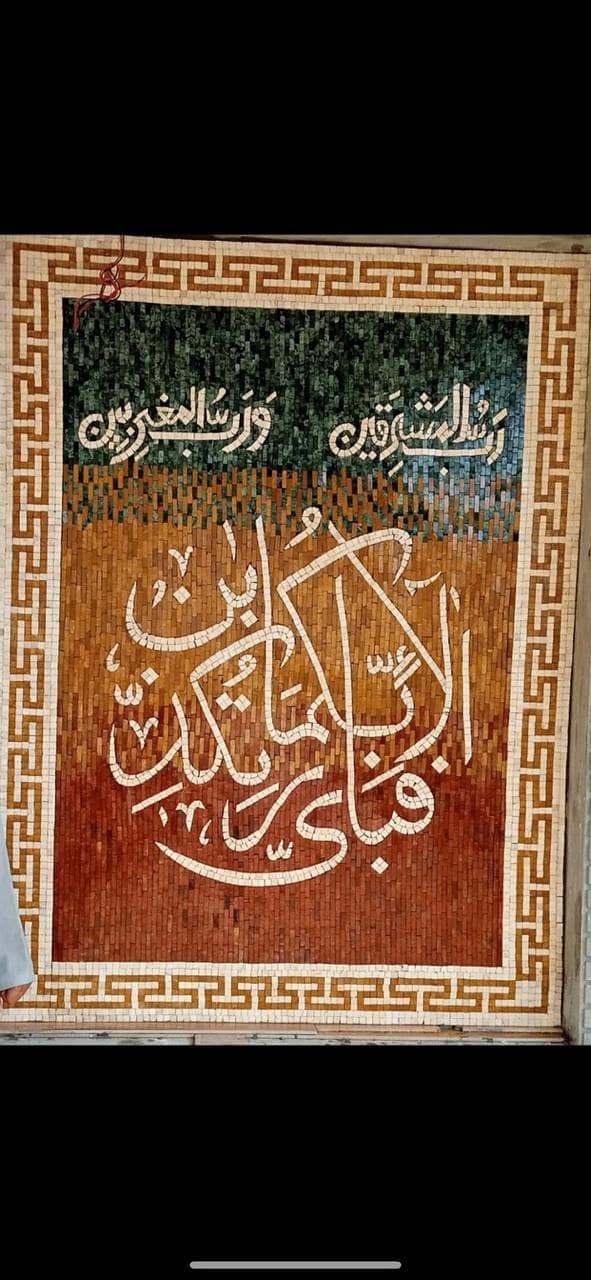 رَبُّ الْمَشْرِقَيْنِ وَرَبُّ الْمَغْرِبَيْنِ
فَبِأَيِّ آلَاءِ رَبِّكُمَا تُكَذِّبَانِ